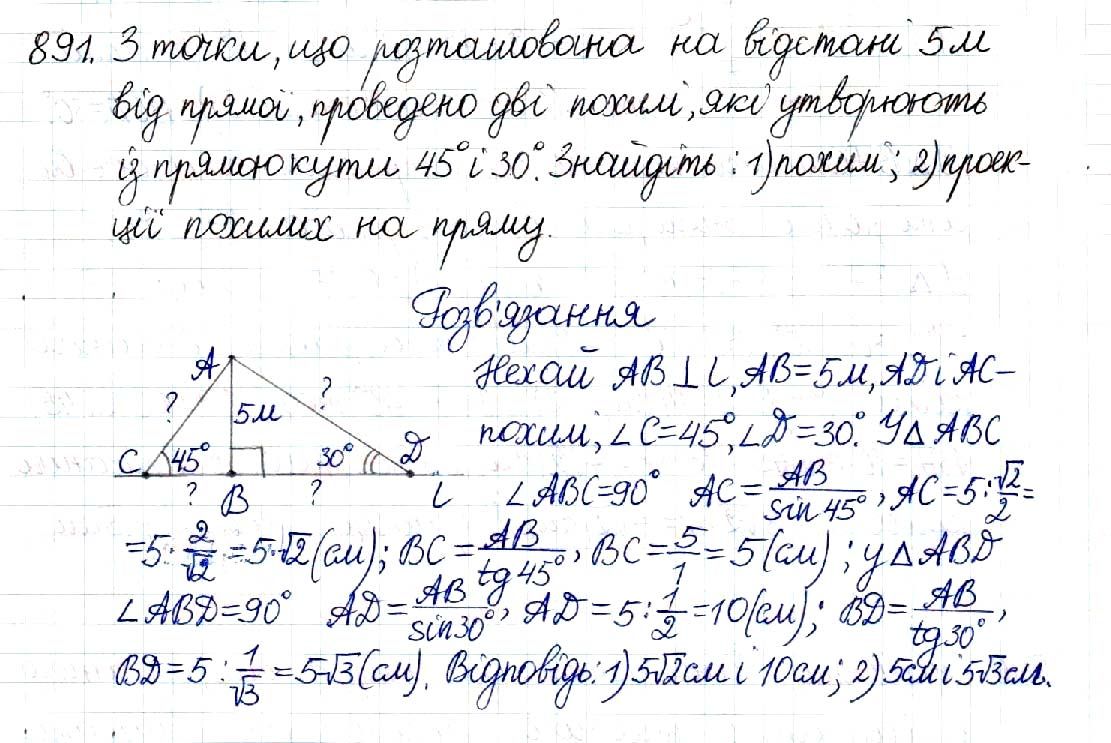 891. З точки, що розташована на відстані 5м
від прямої, проведено дві похилі, які утворюють
із прямою кути 45° і 30°. Знайдіть: 1) похилі; 2) проек-
ції похилих на пряму.
Розв'язання
A
? ?
5м
C 45° 30° D
? B ? L
Нехай AB ⊥ L, AB = 5м, AD і AC –
похилі, ∠C = 45°, ∠D = 30°. У Δ ABC
∠ABC = 90° AC = AB/sin 45°, AC = 5 : √2/2 =
= 5 · 2/√2 = 5·√2 (см); BC = AB/tg 45°, BC = 5/1 = 5 (см); у Δ ABD
∠ABD = 90° AD = AB/sin 30°, AD = 5 : 1/2 = 10 (см); BD = AB/tg 30°,
BD = 5 : 1/√3 = 5√3 (см). Відповідь: 1) 5√2 см і 10 см; 2) 5см і 5√3 см.